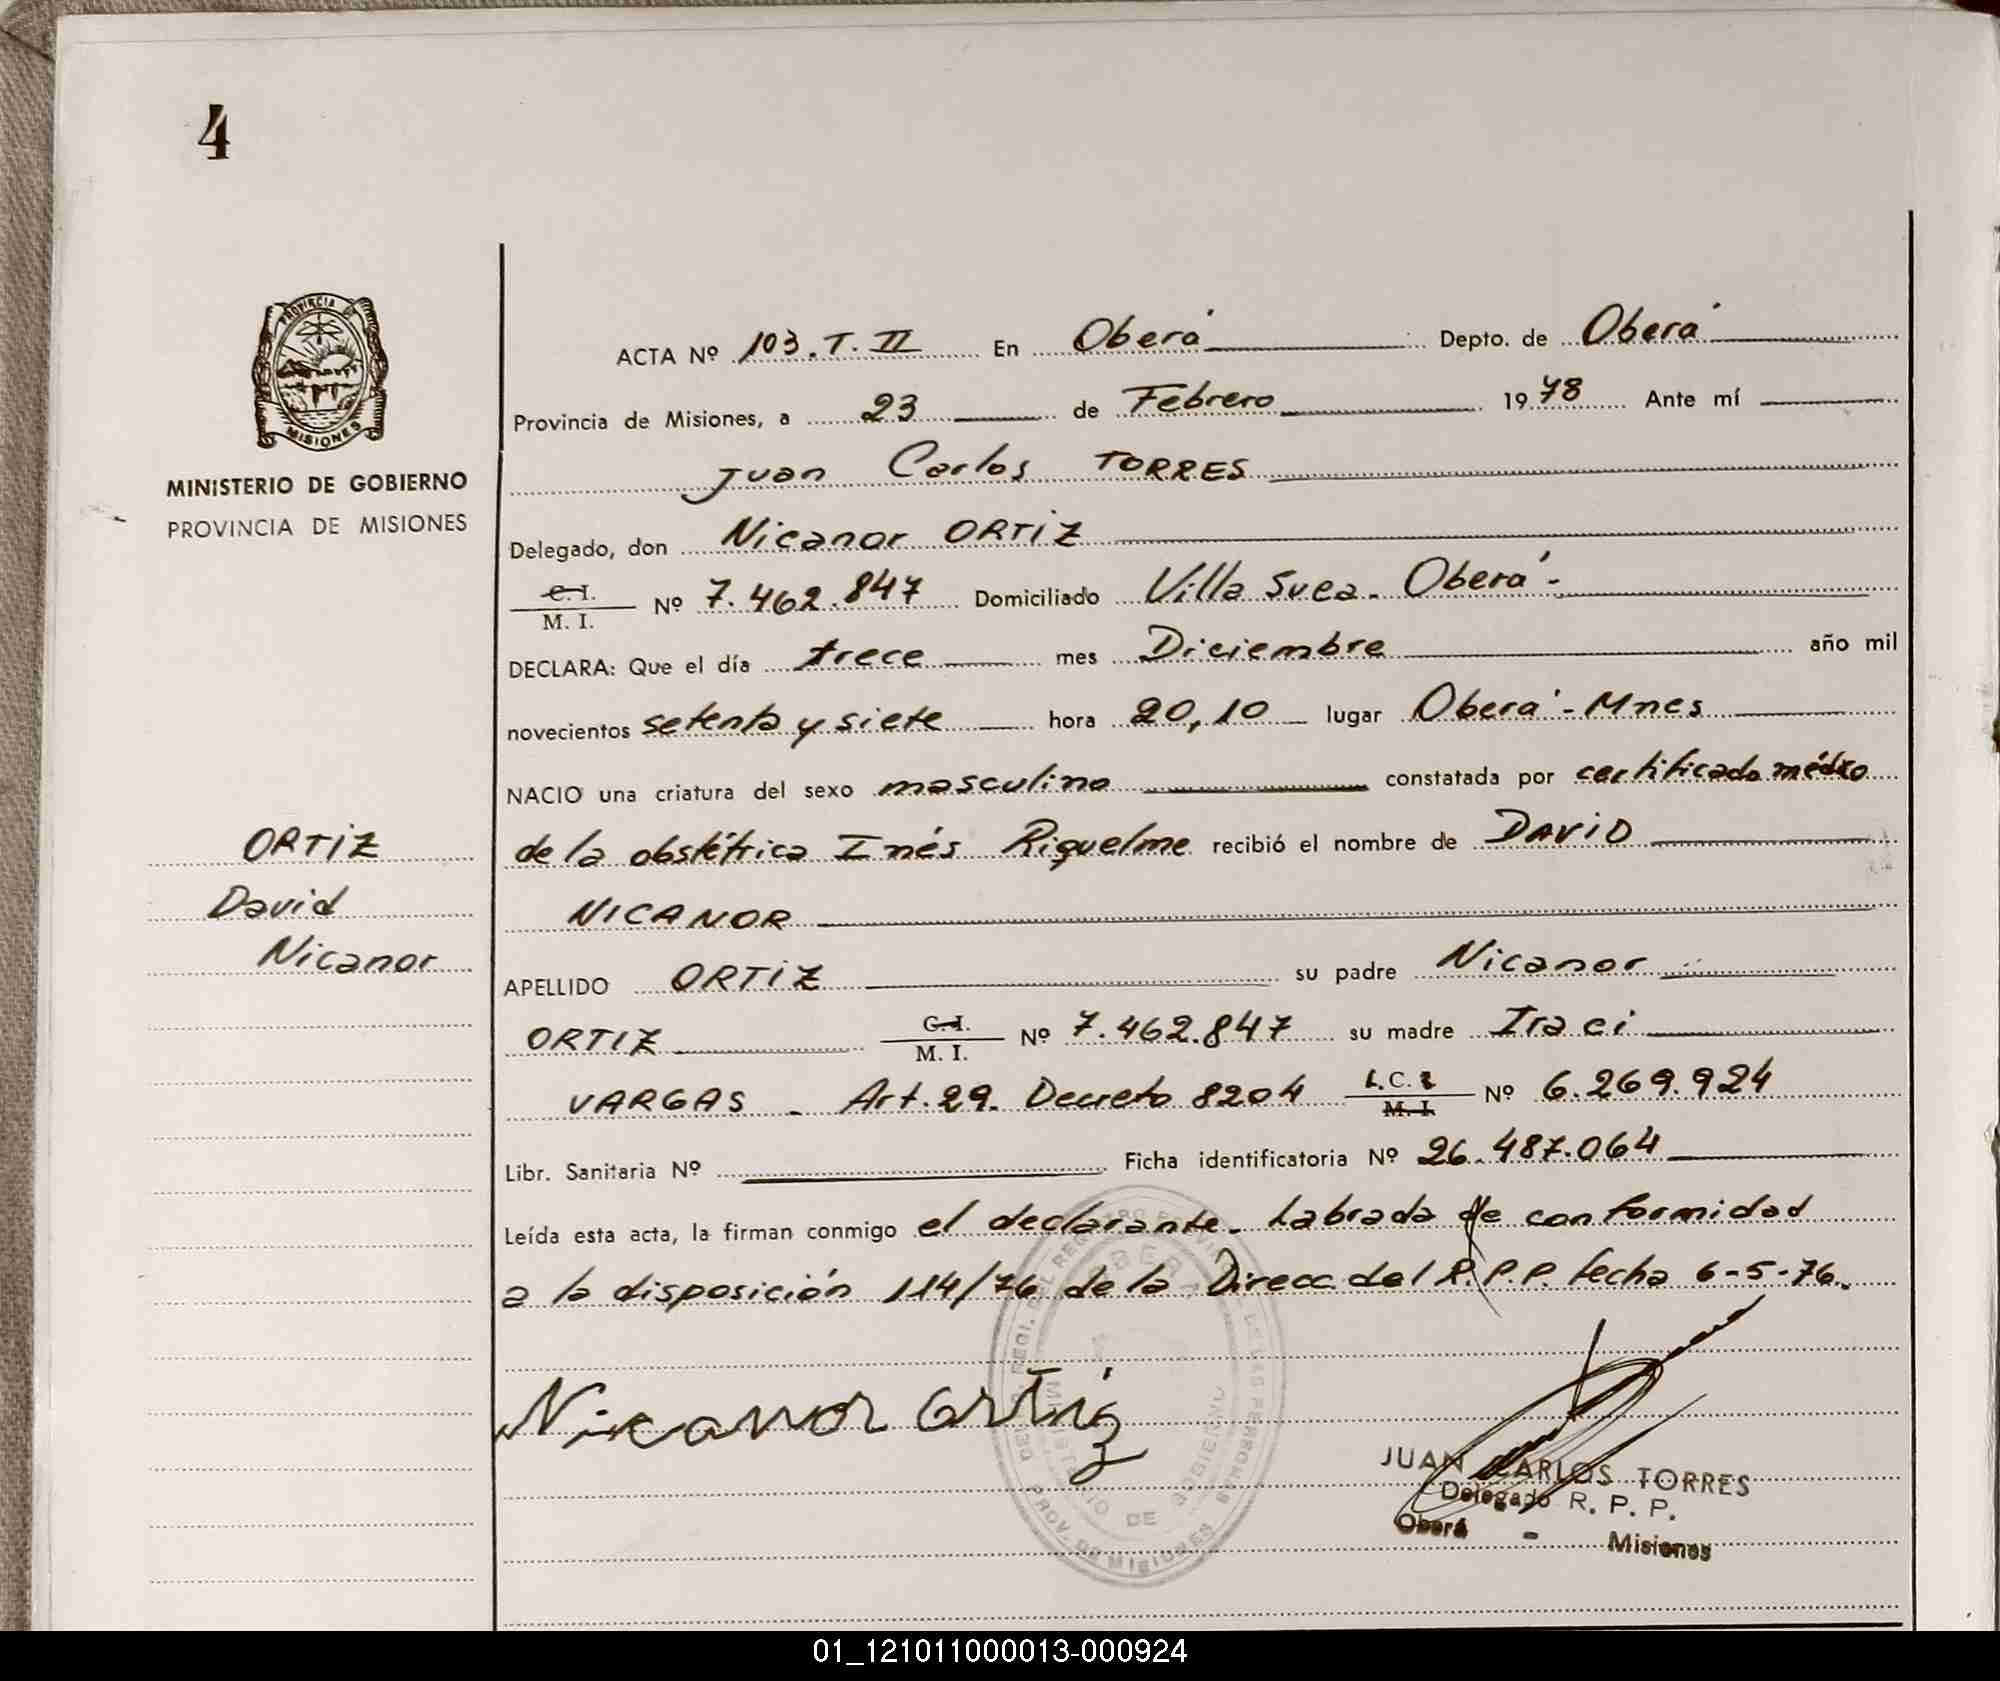 4
PROVINCIA DE
MISIONES
MINISTERIO DE GOBIERNO
PROVINCIA DE MISIONES
ACTA Nº 103.T.II En Oberá Depto. de Oberá
Provincia de Misiones, a 23 de Febrero 1978 Ante mí
Juan Carlos TORRES
Delegado, don Nicanor ORTIZ
C. I.
M. I. Nº 7.462.847 Domiciliado Villa Svea. Oberá -
DECLARA: Que el día trece mes Diciembre año mil
novecientos setenta y siete hora 20,10 lugar Oberá - Mnes
NACIO una criatura del sexo masculino constatada por certificado médico
de la obstétrica Inés Riquelme recibió el nombre de DAVID
NICANOR
APELLIDO ORTIZ su padre Nicanor
ORTIZ C. I.
M. I. Nº 7.462.847 su madre Iraci
VARGAS - Art. 29. Decreto 8204 L.C.
M. I. Nº 6.269.924
Libr. Sanitaria Nº Ficha identificatoria Nº 26.487.064
Leída esta acta, la firman conmigo el declarante. Labrada de conformidad
a la disposición 114/76 de la Direcc. del R.P.P. fecha 6-5-76.
ORTIZ
David
Nicanor
Nicanor Ortiz
OBERA
MINISTERIO DE GOBIERNO
PROV. DE MISIONES
JUAN CARLOS TORRES
Delegado R. P. P.
Oberá - Misiones
01_121011000013-000924